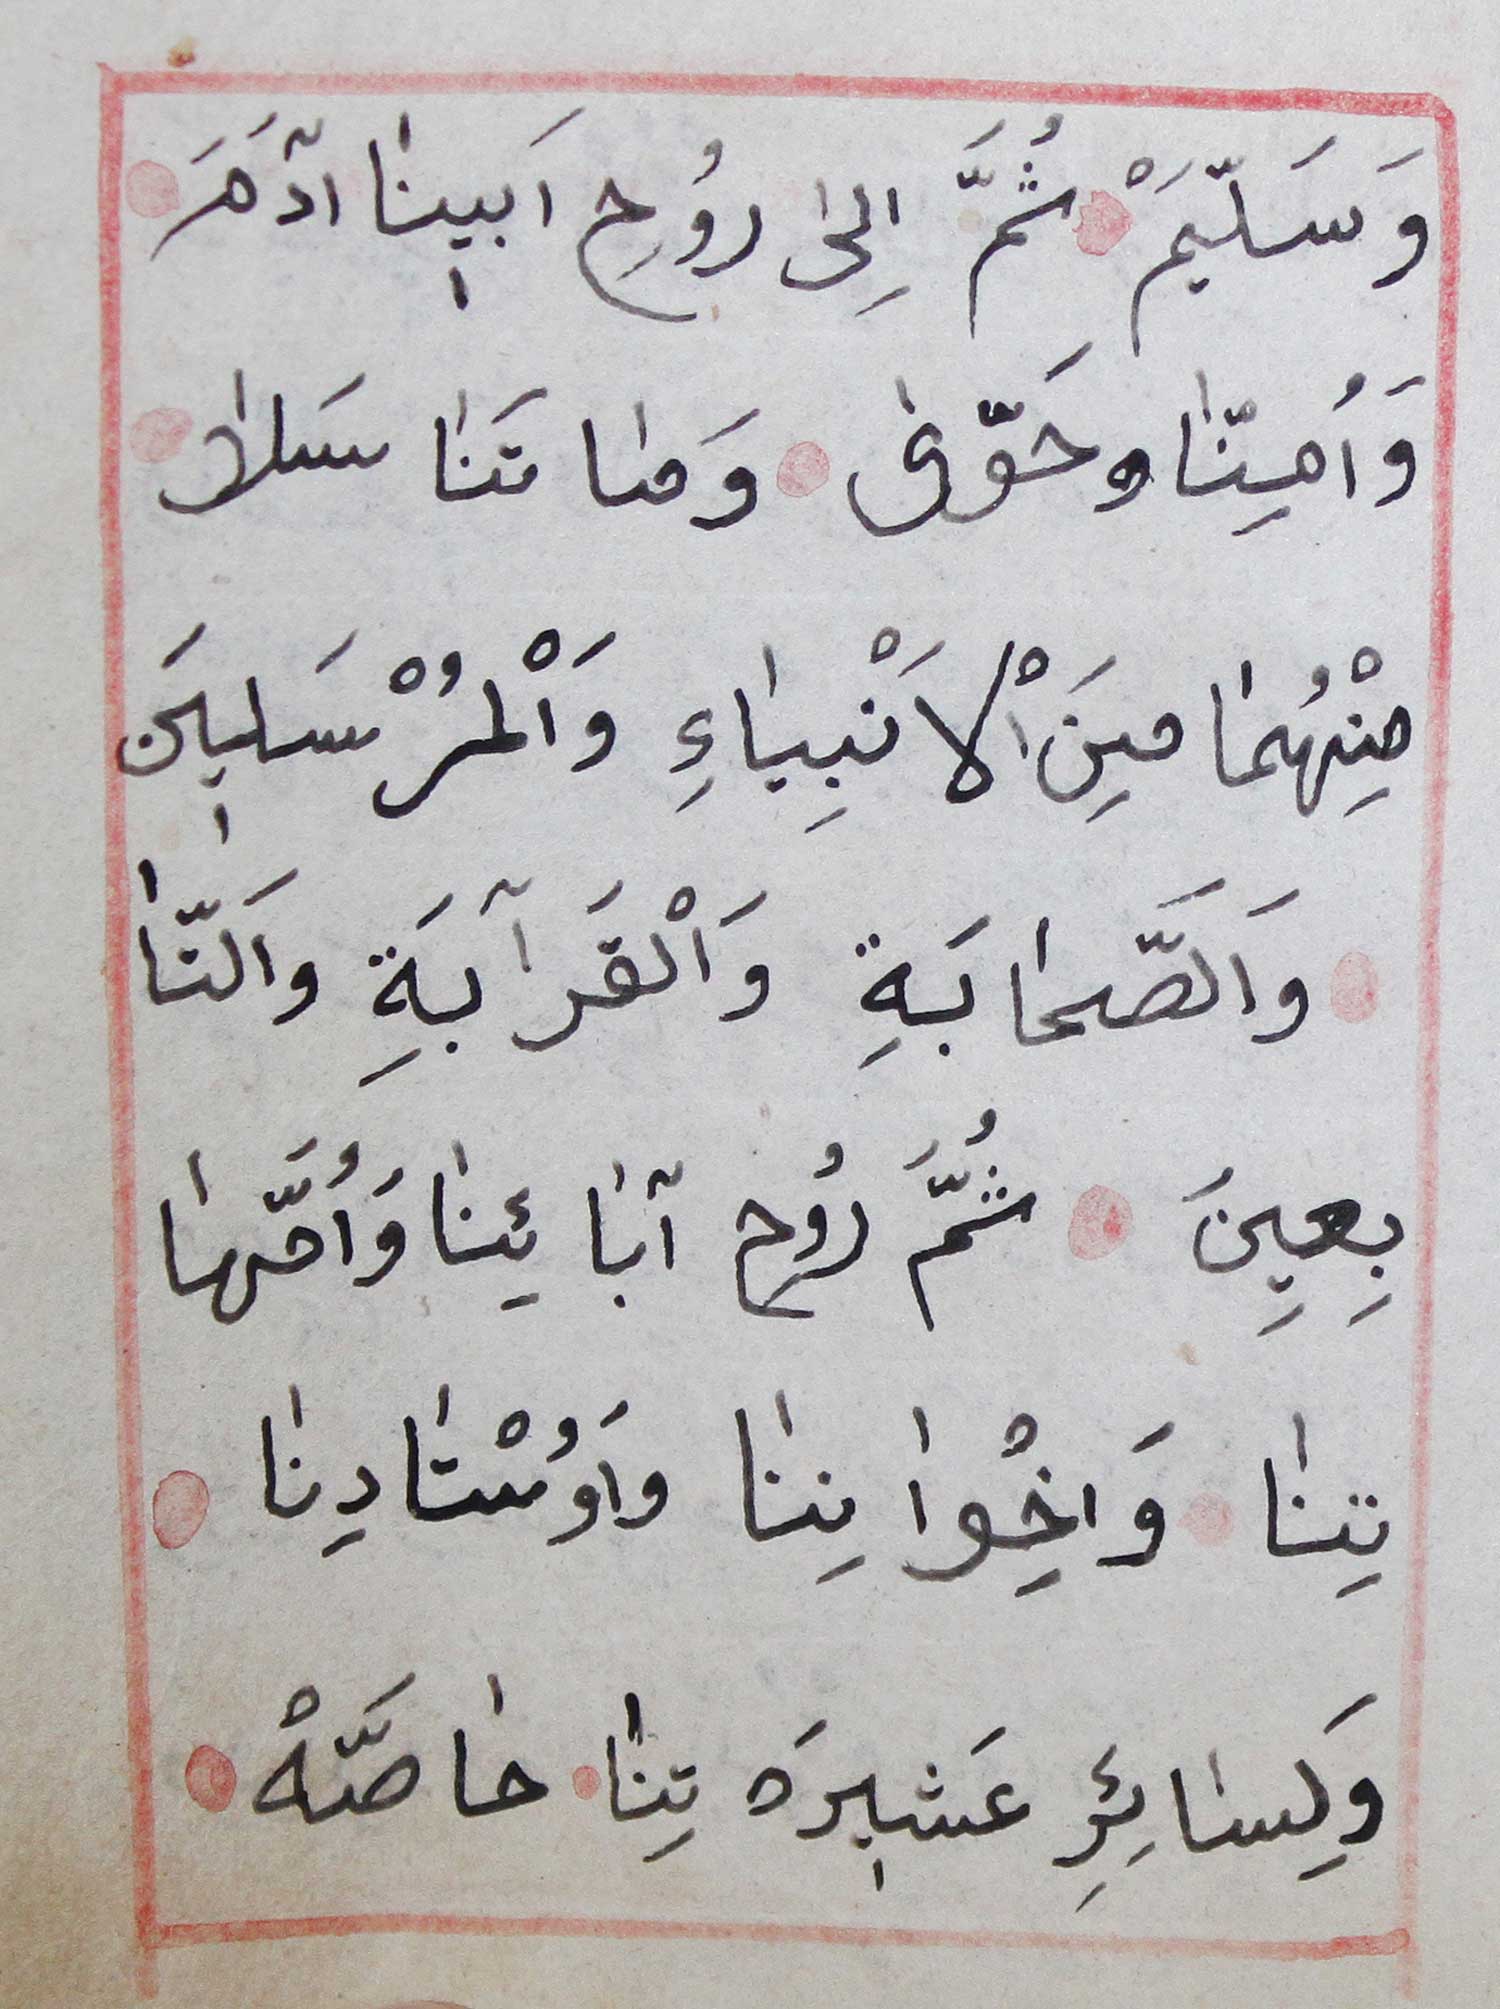 وَسَلِّيمْ ثُمَّ اِلىٰ رُوُحِ اَبيٖنٰا اٰدَمَ
وَاُمِنّٰا وحَوّىٰ وَمٰا تَنٰا سَلاٰ
مِنْهُمٰا مِينَ الْاَنْبِيٰاءِ وَالْمُرْسَليٖنَ
وَالصَّحٰابَةِ وَالْقَرٰٓابَةِ وَالتّٰا
بِعِينَ ثُمَّ رُوُحِ آبٰا ئِنٰا وَاُمَّهٰا
تِنٰا وَاخِْوٰا نِنٰا وَاوُسْتٰادِنٰا
وَلِسٰائِرِ عَشيٖرَه تِنٰا خٰاصَّهْ